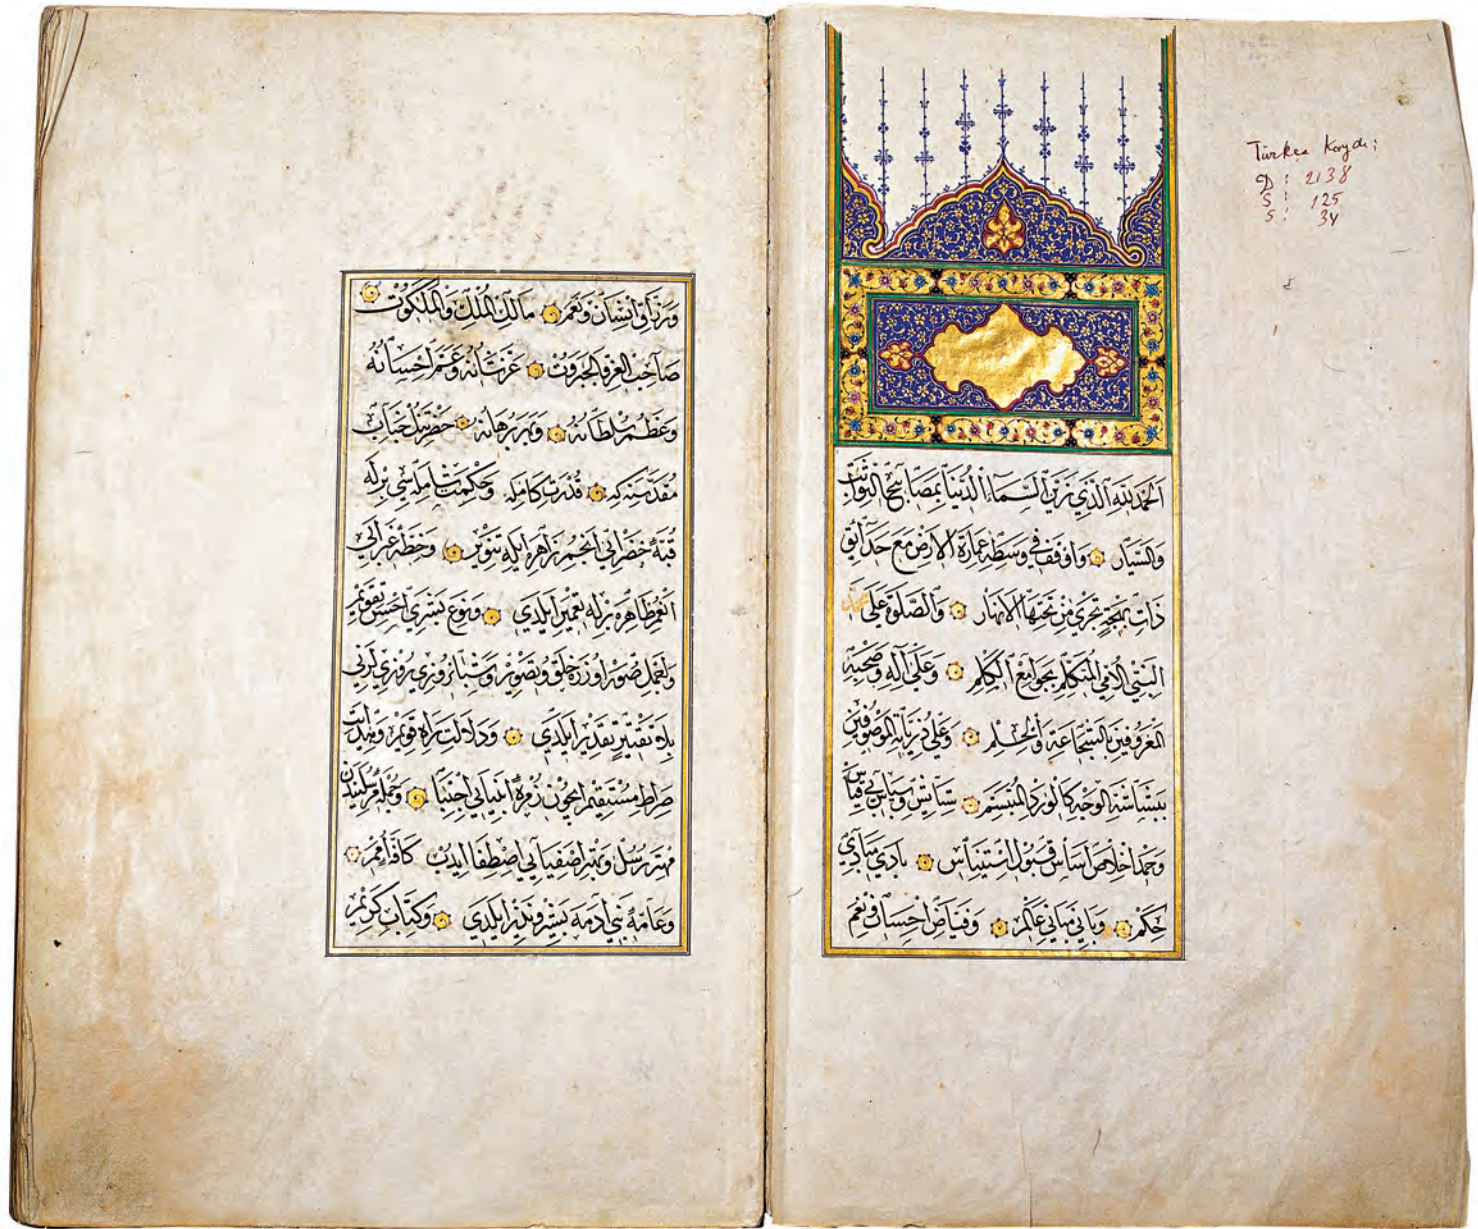 الحمد لله الذي زين السماء الدنيا بمصابيح الثوابت
والسيار واوقف في وسطه عمارة الارض مع حدائق
ذات بهجة تجري من تحتها الانهار والصلوة على محمد
النبي الامي المتكلم بجوامع الكلم وعلى آله وصحبه
المعروفين بالشجاعة والحلم وعلى ذرياته الموصوفين
ببشاشة الوجه كالورد المبتسم سپاس بي قياس
وحمد اخلاص اساس قبول استيناس بادي مبادي
حكم وباني مباني عالم وفياض احسان ونعم
ورزاق انسان ونعم مالك الملك والملكوت
صاحب العز والجبروت عز شانه وعم احسانه
وعظم سلطانه وبهر برهانه حضرتنك جناب
مقدسنه كه قدرت كامله وحكمت شامله سي برله
قبه خضرايي انجم زاهره ايله تنوير وخطه غبرايي
انعم ظاهره برله تعمير ايلدي ونوع بشري احسن تقويم
واجمل صور اوزره خلق وتصوير وشبانروزي روزيلرني
بلا تقتير تقدير ايلدي ودلالت راه قويم وهدايت
صراط مستقيم ايچون زمره انبيايي اجتبا وجمله سندن
مهتر رسل وبهتر اصفيايي اصطفا ايدب كافه امم
وعامه بني آدمه بشير ونذير ايلدي وكتاب كريم
Türkçe Kaydı;
D: 2138
S: 125
S: 34